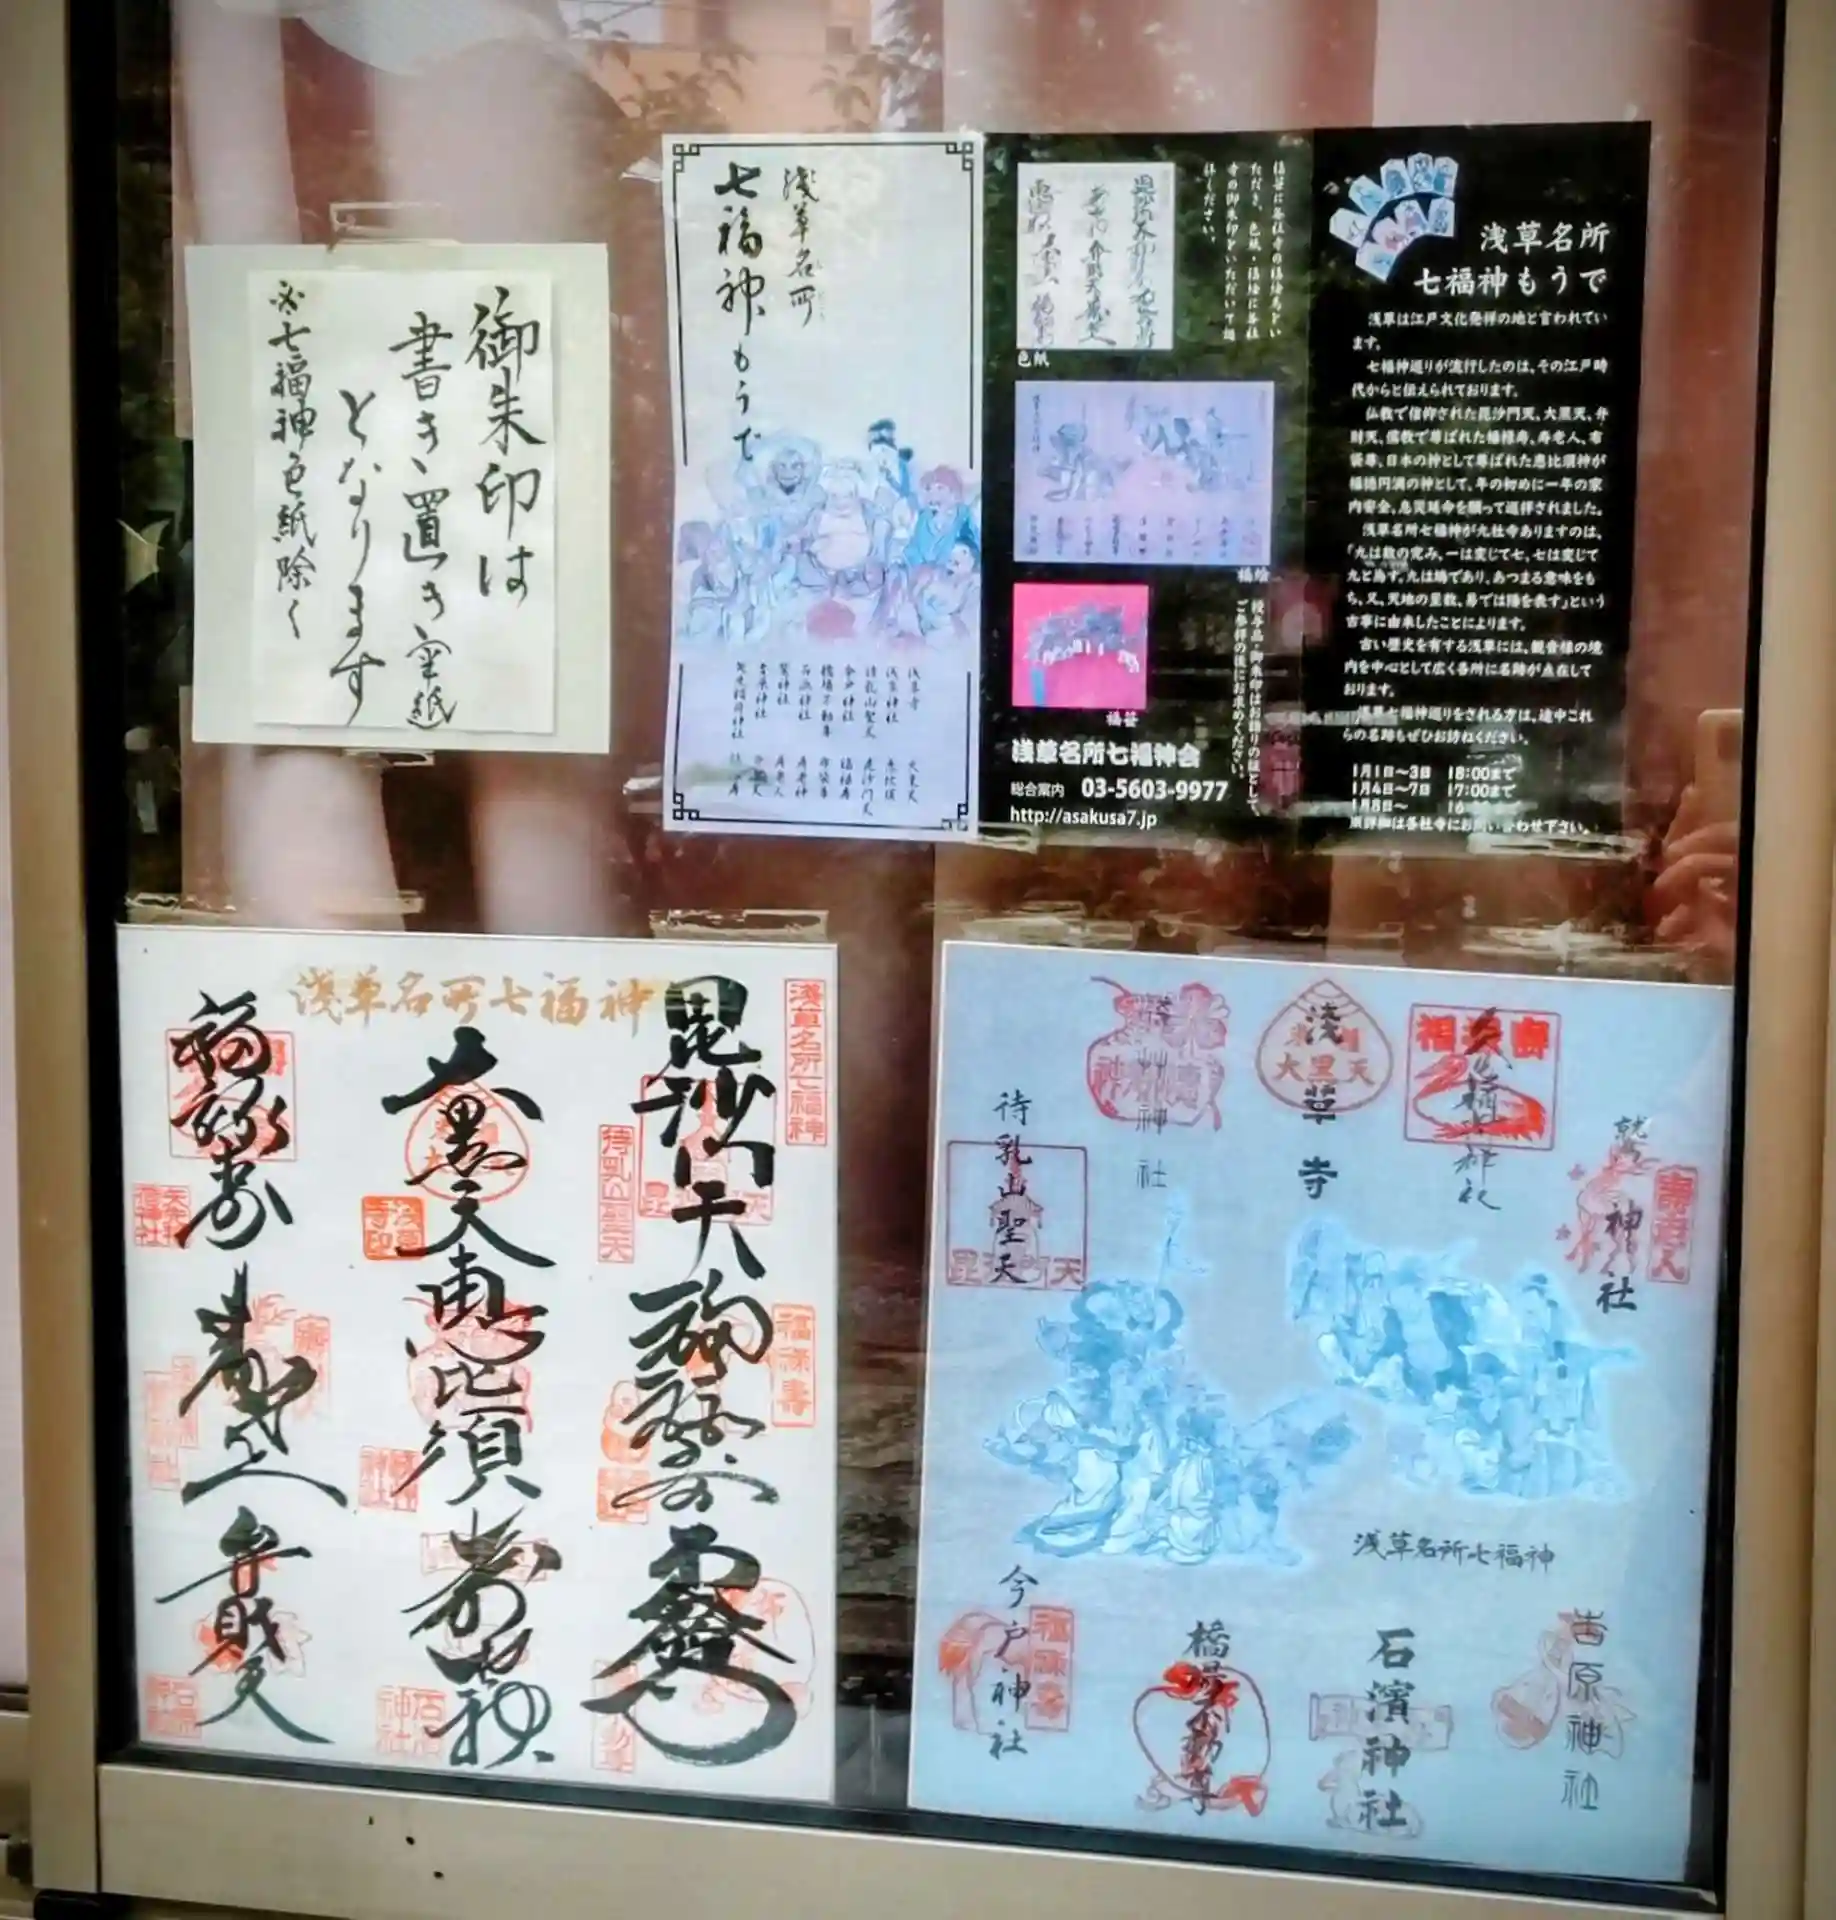 御朱印は
書き置き和紙
となります
※七福神色紙除く
浅草名所
七福神もうで
浅草寺 大黒天
浅草神社 恵比須
待乳山聖天 毘沙門天
今戸神社 福禄寿
橋場不動尊 布袋尊
石浜神社 寿老神
鷲神社 寿老人
吉原神社 弁財天
矢先稲荷神社 福禄寿
色紙
福絵
福笹
授与品・御朱印はお詣りの証として
ご参拝の後にお求めください。
浅草名所七福神会
総合案内 03-5603-9977
http://asakusa7.jp
浅草名所
七福神もうで
浅草は江戸文化発祥の地と言われてい
ます。
七福神巡りが流行したのは、その江戸時
代からと伝えられております。
仏教で信仰された毘沙門天、大黒天、弁
財天、儒教で尊ばれた福禄寿、寿老人、布
袋尊、日本の神として尊ばれた恵比須神が
福徳円満の神として、年の初めに一年の家
内安全、息災延命を願って巡拝されました。
浅草名所七福神が九社寺ありますのは、
「九は数の究み、一は変じて七、七は変じて
九と為す。九は鳩であり、あつまる意味をも
ち、又、天地の至数、易では陽を表す」という
古事に由来したことによります。
古い歴史を有する浅草には、観音様の境
内を中心として広く各所に名跡が点在して
おります。
浅草七福神巡りをされる方は、途中これ
らの名跡もぜひお訪ねください。
1月1日〜3日 18:00まで
1月4日〜7日 17:00まで
1月8日〜
浅草名所七福神
浅草名所七福神
毘沙門天
福禄寿
大黒天
恵比須
寿老神
福禄寿
寿老人
弁財天
待乳山聖天
福禄寿
浅草神社
浅草寺
大黒天
矢先稲荷神社
鷲神社
寿老人
待乳山聖天
毘沙門天
浅草名所七福神
今戸神社
福禄寿
橋場不動尊
石濱神社
吉原神社